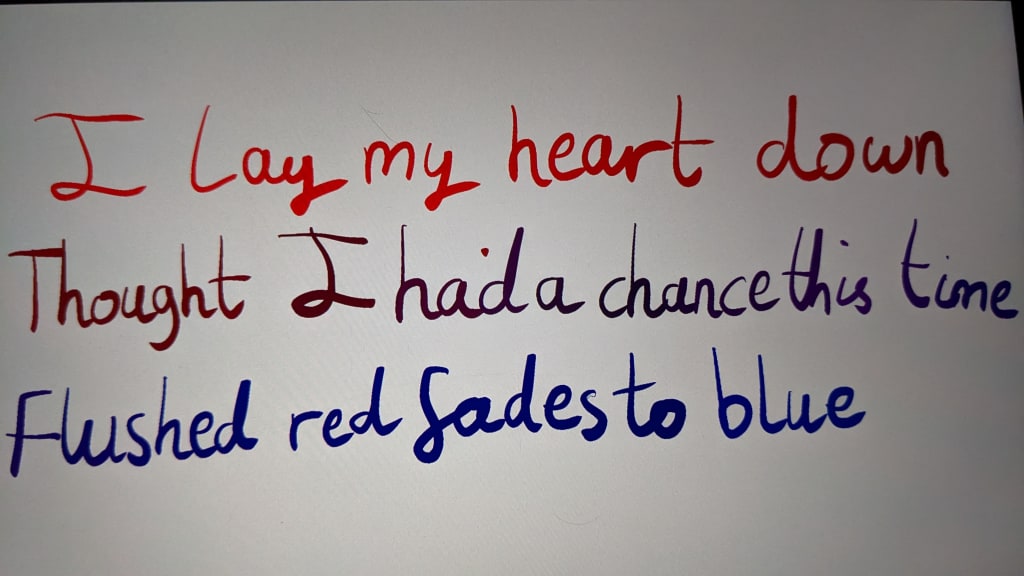 I lay my heart down
Thought I had a chance this time
Flushed red fades to blue